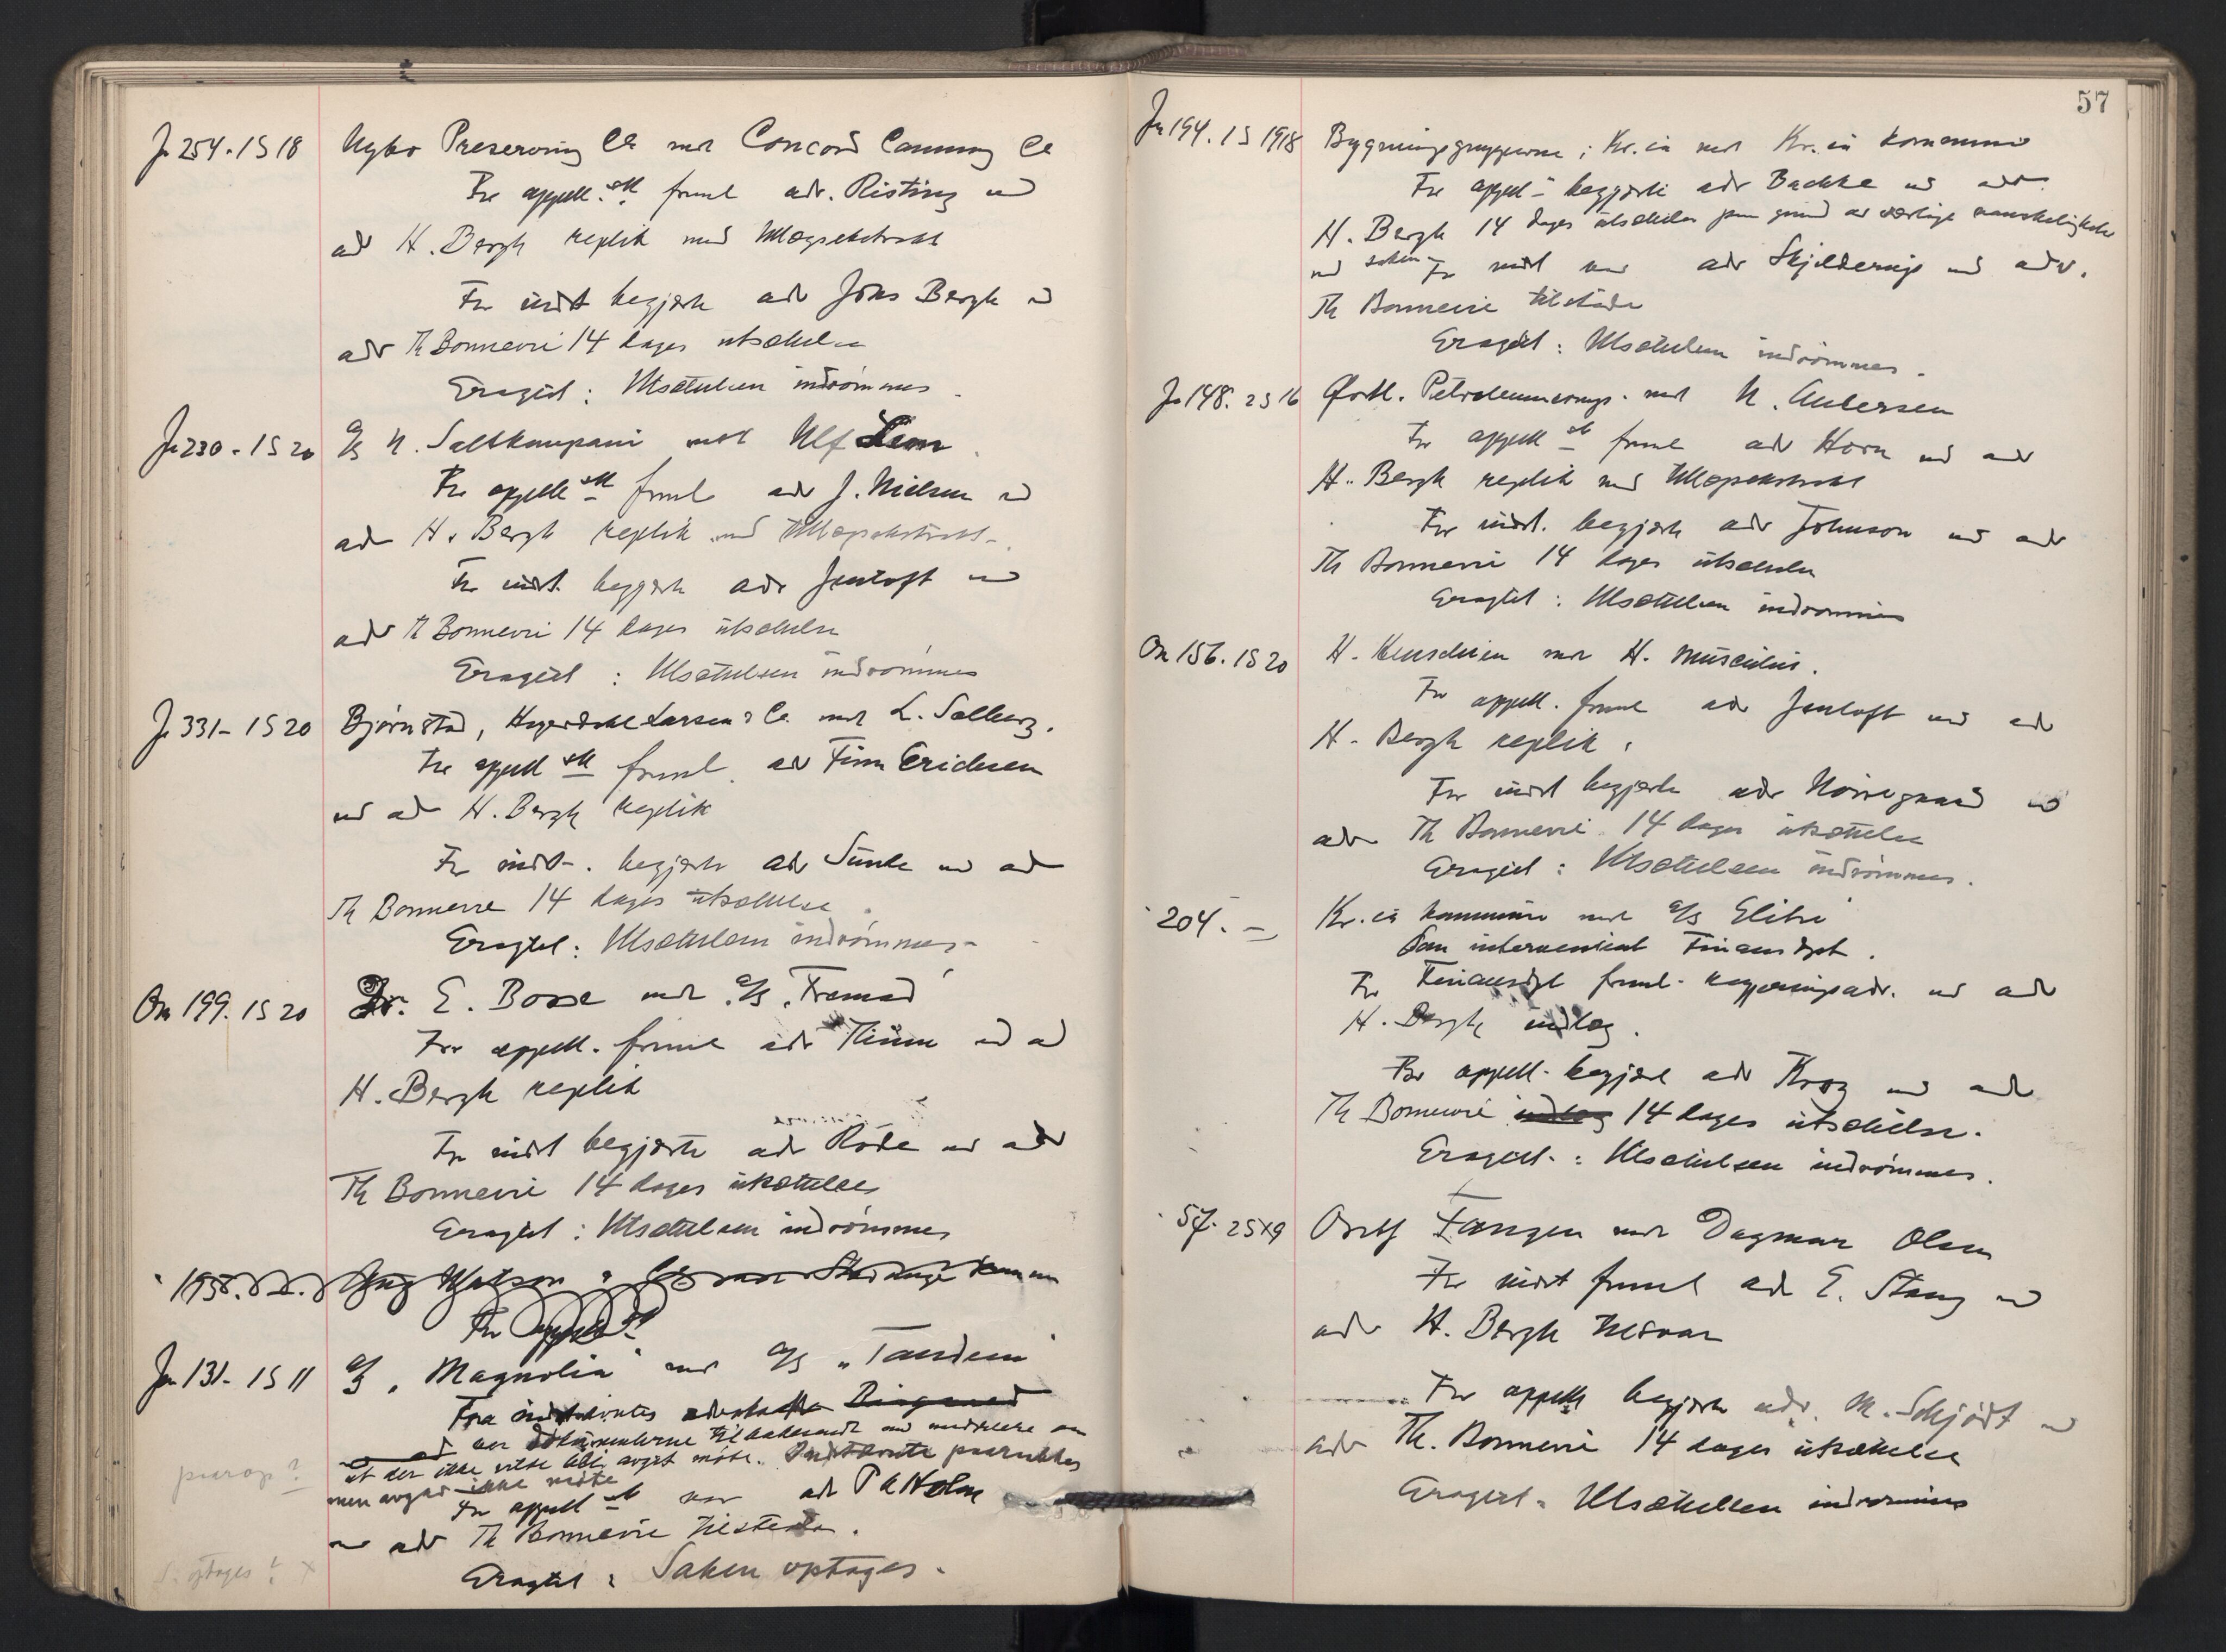 J 254. 1S 18 Nybo Preserving Co mot Concord Canning Co
For appell. st freml adv. Risting ved
adv H. Bergh replik med utlægsekstrakt
For indst begjærte adv Johs Bergh v
adv Th Bonnevie 14 dages utsættelse
Eragtet: Utsættelsen indrömmes.
J 230 - 1S 20 A/S N. Saltkompani mot Ulf Leon.
For appell st freml adv J. Nielsen v
adv H. Bergh replik med utlægsekstrakt.
For indst. begjærte adv Jentoft v
adv Th Bonnevie 14 dages utsættelse
Eragtet: Utsættelsen indrömmes
J 331 - 1S 20 Björnstad, Heyerdahl Larsen & Co mot L. Solberg.
For appell st freml. adv Finn Erichsen
ved adv H. Bergh replik
For indst. begjærte adv Sunde ved adv
Th Bonnevie 14 dages utsættelse
Eragtet: Utsættelsen indrömmes.
On 199. 1S 20 Dr. E. Bosse mot A/S "Fremad"
For appell. freml adv Thune ved ad
H. Bergh replik
For indst begjærte adv Rode ved adv
Th Bonnevie 14 dages utsættelse
Eragtet: Utsættelsen indrömmes
For appell st
Jn 131 - 1S 11 A/S "Magnolia" mot A/S "Tandem"
Fra indstevntes
dokumenterne tilbakesendt med meddelelse om
at der ikke vilde bli avgit möte. Indstevnte paaraaptes
men avgav ikke möte
paarop?
For appell st var adv P A Holm
ved adv Th Bonnevie tilstede.
S. optages? x
Eragtet: Saken optages.
57
Jn 194. 1S 1918 Bygningsgruppene i Kr.ia mot Kr.ia kommune
For appell begjærte adv Backe ved adv.
H. Bergh 14 dages utsættelse paa grund av særlige vanskeligheter
ved saken. For indst var adv Skjelderup ved adv.
Th Bonnevie tilstede
Eragtet: Utsættelsen indrömmes.
Jn 148. 2S 16 Østl. Petroleumcomp. mot N. Andersen
For appell st freml adv Horn ved adv
H. Bergh replik med utlægsekstrakt
For indst. begjærte adv Johnson ved adv
Th Bonnevie 14 dages utsættelse
Eragtet: Utsættelsen indrömmes
On 156. 1S 20 H. mot H. Musculus.
For appell. freml adv Jentoft ved adv
H. Bergh replik.
For indst begjærte adv Nörregaard ved
adv Th Bonnevie 14 dages utsættelse
Eragtet: Utsættelsen indrömmes.
204. — Kr.ia kommune mot A/S Elite
Som intervenient Finansdpt.
For Finansdpt freml. regjeringsadv. ved adv
H. Bergh indlæg.
For appell. begjært adv Krog ved adv
Th Bonnevie indlæg 14 dages utsættelse.
Eragtet: Utsættelsen indrömmes.
57. 2S 19 Fangen mot Dagmar Olsen
For indst freml adv E. Stang ved
adv H. Bergh tilsvar
For appell begjærte adv. M. Schjödt v
adv Th. Bonnevie 14 dages utsættelse
Eragtet: Utsættelsen indrömmes